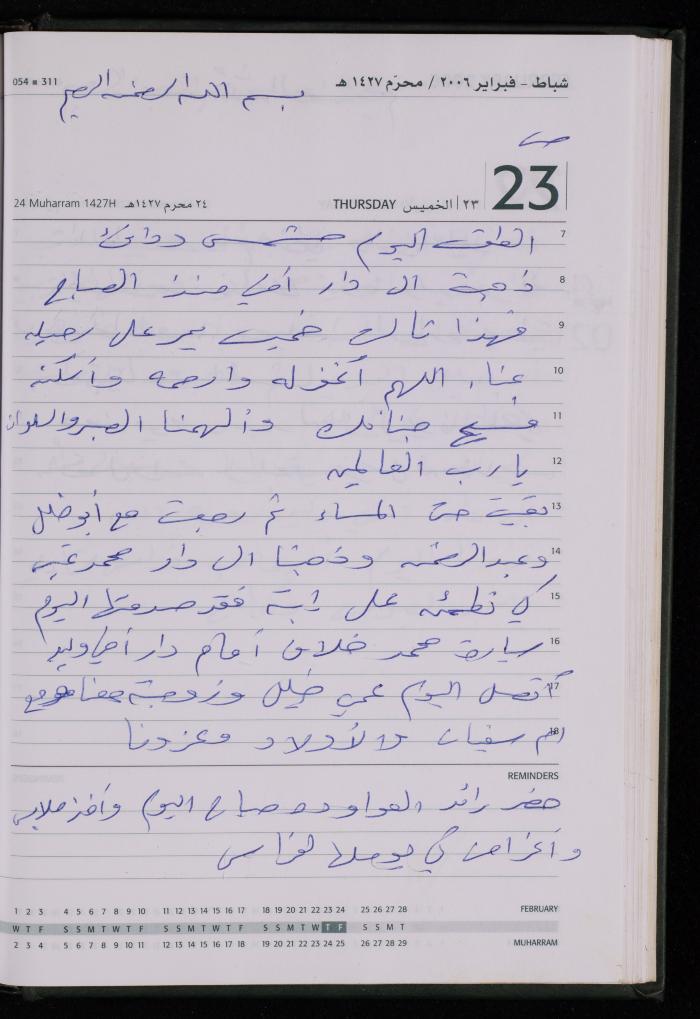 شباط - فبراير ٢٠٠٦ / محرّم ١٤٢٧ هـ
054 ■ 311
بسم الله الرحمن الرحيم
23
٢٣ الخميس THURSDAY
٢٤ محرم ١٤٢٧هـ 24 Muharram 1427H
7 الطقس اليوم مشمس ودافئ
8 ذهبت الى دار أهلي منذ الصباح
9 فهذا ثالث خميس يمر على رحيله
10 عنا، اللهم أغفر له وارحمه وأسكنه
11 فسيح جنانك وألهمنا الصبر والسلوان
12 يا رب العالمين
13 بقيت حتى المساء ثم رجعت مع أبو خليل
14 وعبد الرحمن وذهبنا الى دار محمد
15 كي نطمئن على فقد صدمتها اليوم
16 سيارة محمد أمام دار
17 أتصل اليوم عمي خليل وزوجته مع
18 ام سفيان والأولاد وعزونا
REMINDERS
حضر رائد صباح اليوم وأخذ ملابس
وأغراض كي يوصلها لفراس
1 2 3 4 5 6 7 8 9 10 11 12 13 14 15 16 17 18 19 20 21 22 23 24 25 26 27 28 FEBRUARY
W T F S S M T W T F S S M T W T F S S M T W T F S S M T
2 3 4 5 6 7 8 9 10 11 12 13 14 15 16 17 18 19 20 21 22 23 24 25 26 27 28 29 MUHARRAM